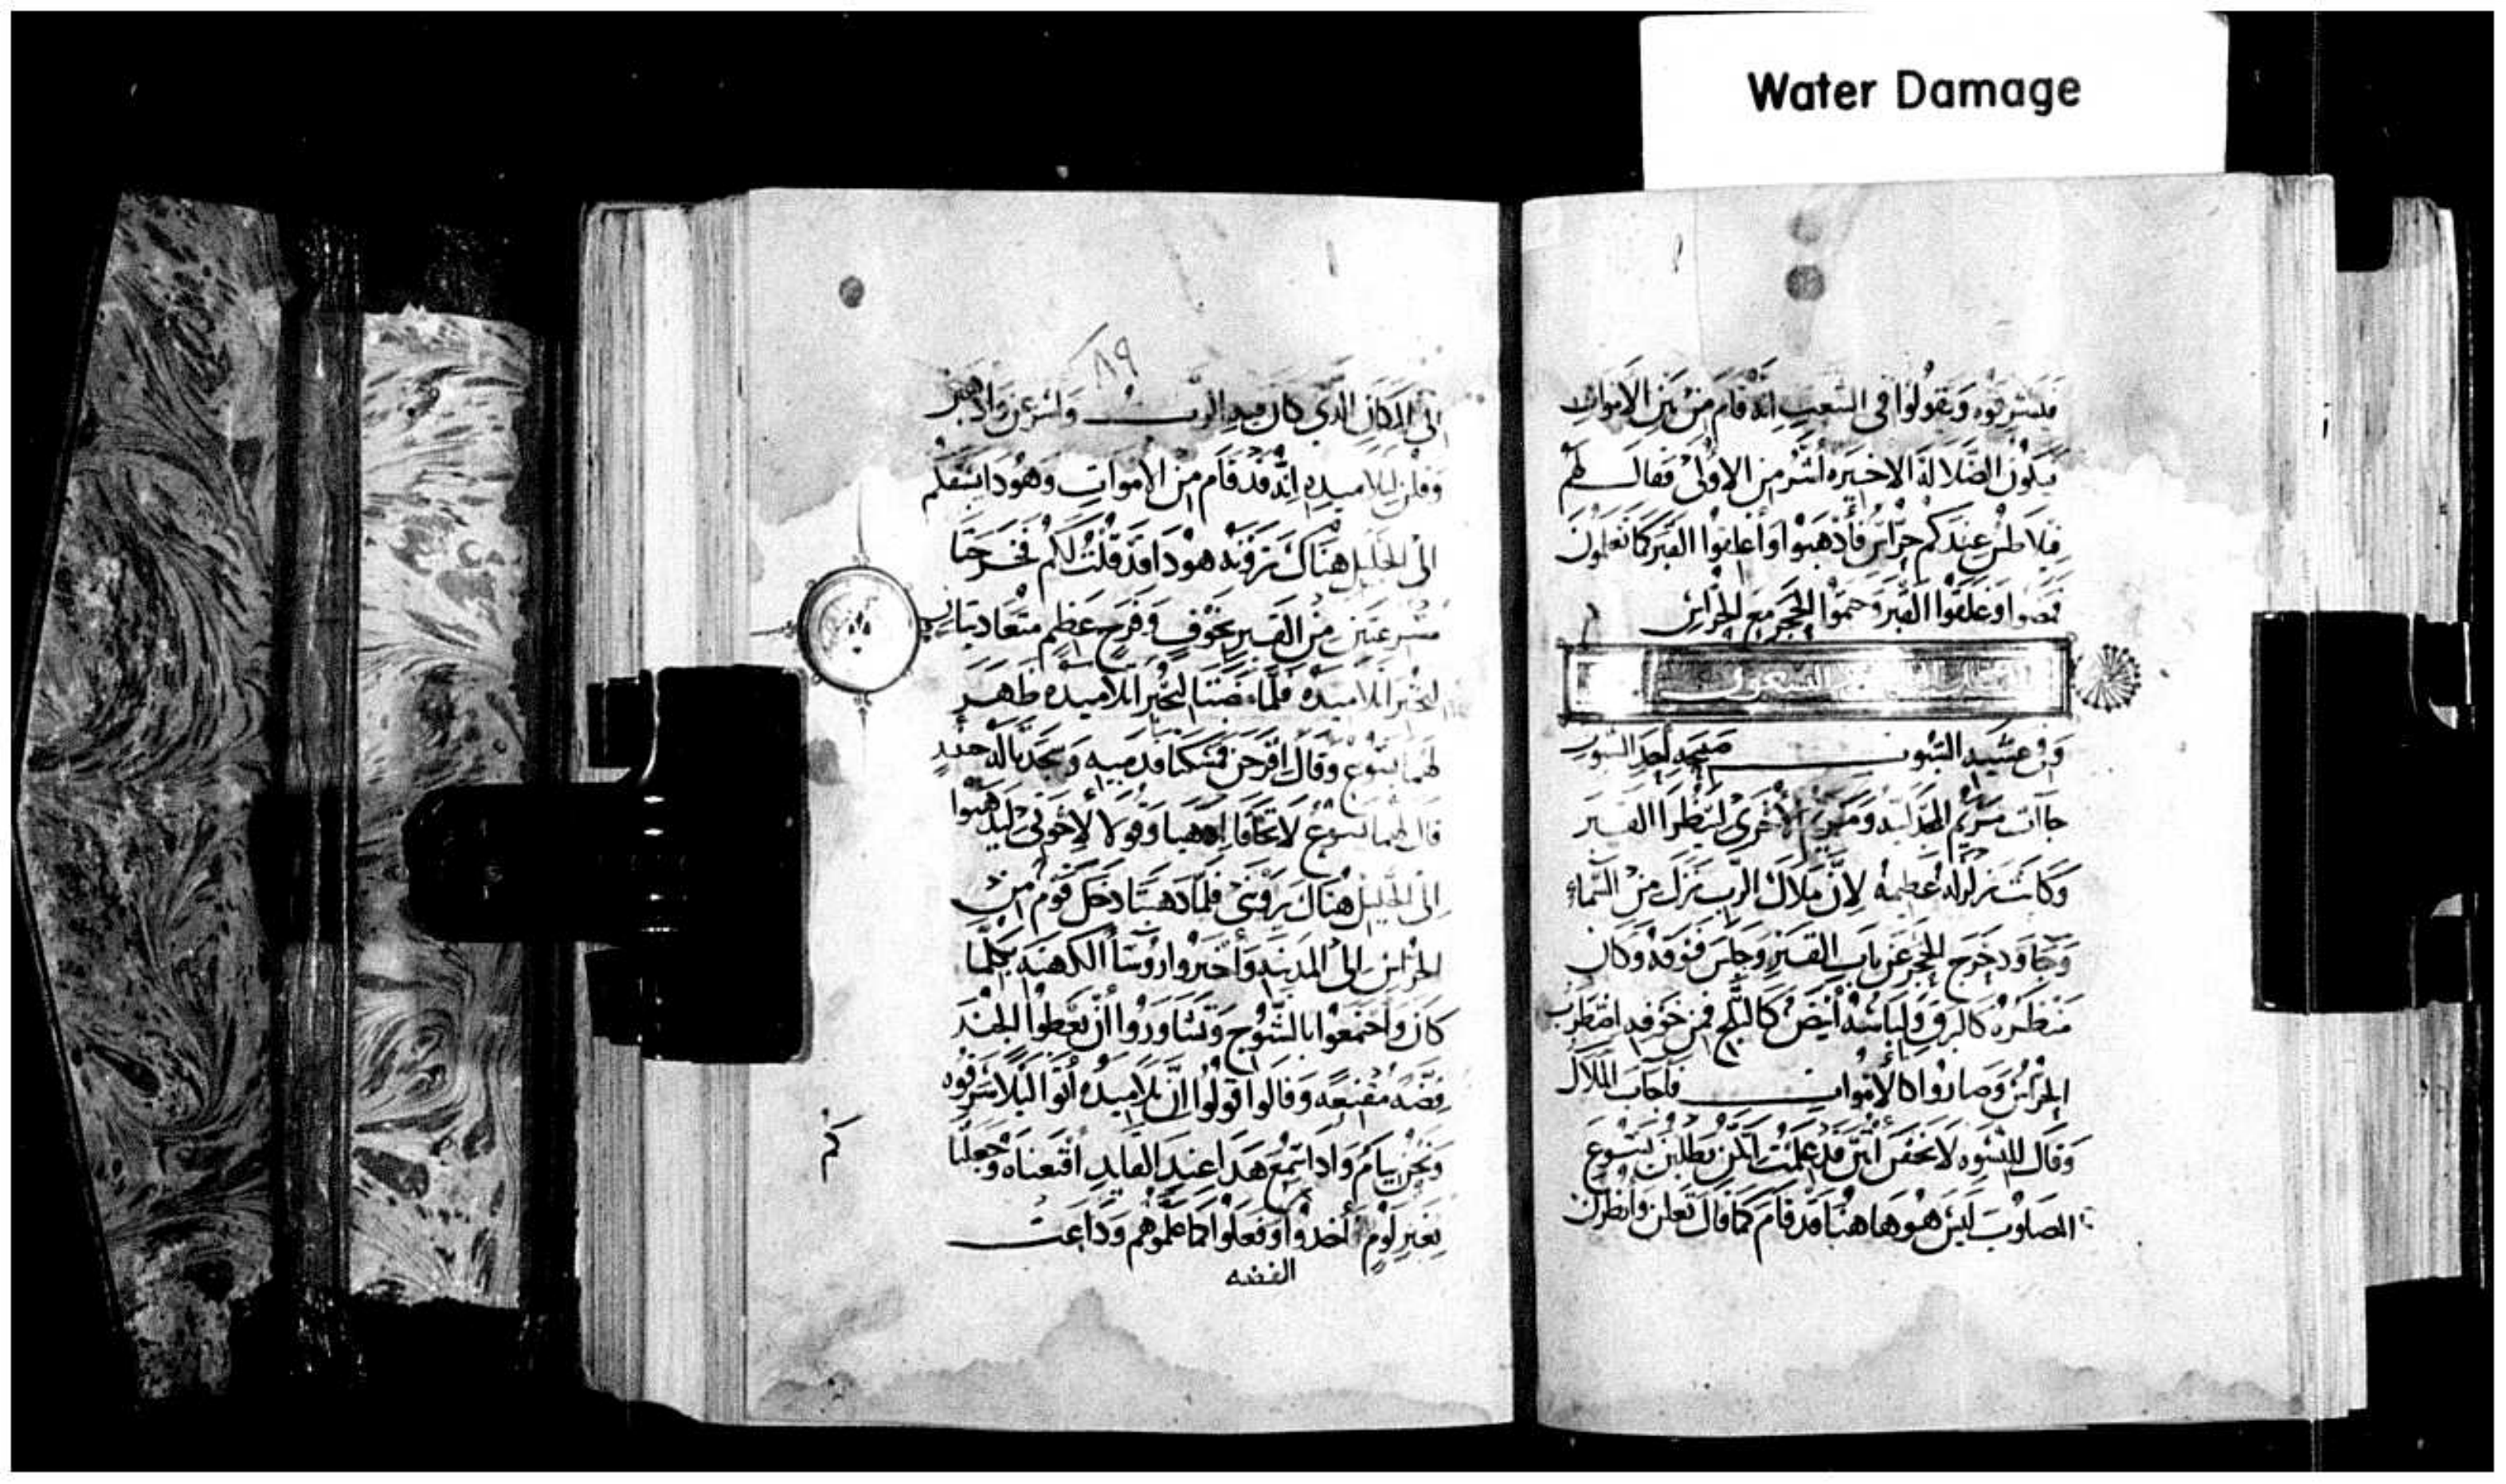 Water Damage
فيسرقوه ويقولوا في الشعب انه قام من بين الاموات
فيكون الضلالة الاخيره اشر من الاولى فقال لهم
فيلاطس عندكم حراس فاذهبوا واغلقوا القبر كما تعلمون
فمضوا وغلقوا القبر وختموا الحجر مع الحراس
وفي عشيه السبوت صبيحه احد السبوت
جاات مريم المجدليه ومريم الاخرى لينظرا القبر
وكانت زلزله عظيمه لان ملاك الرب نزل من السماء
وجا ودحرج الحجر عن باب القبر وجلس فوقه وكان
منظره كالبرق ولباسه ابيض كالثلج فمن خوفه اضطرب
الحراس وصاروا كالاموات فاجاب الملاك
وقال للنسوه لا تخفن انتن قد علمت انكن تطلبن يسوع
المصلوب ليس هو هاهنا قد قام كما قال تعلن وانظرن
٨٩
الى المكان الذي كان فيه الرب واسرعن واذهبن
وقلن لتلاميذه انه قد قام من الاموات وهوذا يسبقكم
الى الجليل هناك ترونه هوذا قد قلت لكم فخرجتا
مسرعتين من القبر بخوف وفرح عظيم متعاديتان
لتخبرا تلاميذه فلما مضتا لتخبرا تلاميذه ظهر
لهما يسوع وقال افرحن فمسكتا قدميه وسجدتا له حينيذ
قال لهما يسوع لا تخافا اذهبا وقولا لاخوتي ليذهبوا
الى الجليل هناك يروني فلما ذهبتا دخل قوم من
الحراس الى المدينه واخبروا روسا الكهنه بكلما
كان واجتمعوا بالشيوخ وتشاوروا ان يعطوا الجند
فضه مقنعه وقالوا قولوا ان تلاميذه اتوا ليلا سرقوه
ونحن نيام واذا سمع هذا عند القايد اقنعناه وجعلنا
كم بغير لوم اخذوا وفعلوا كما علموهم وذاعت
الفضه